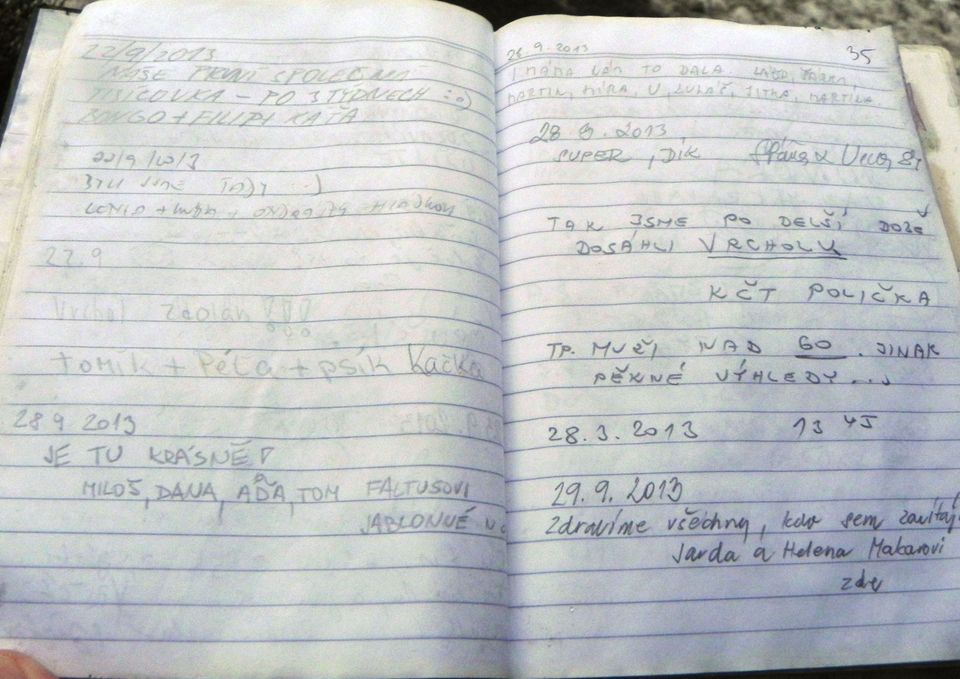 22/9/2013
NAŠE PRVNÍ SPOLEČNÁ
TISÍCOVKA - PO 3 TÝDNECH :o)
BONGO + FILIP + KÁŤA
22/9/2013
BYLI JSME TADY :)
LENKA +
22.9
Vrchol zdolán!!!
tomík + Péťa + psík Kačka
28 9 2013
JE TU KRÁSNĚ!
MILOŠ, DANA, AĎA, TOM FALTUSOVI
JABLONNÉ N O
28.9.2013 35
I MÁMA VÁM TO DALA.
MARTIN, MÍRA, JITKA, MARTINA
28 9. 2013,
SUPER, DÍK
TAK JSME PO DELŠÍ DOBĚ
DOSÁHLI VRCHOLU
KČT POLIČKA
TP. MUŽI NAD 60. JINAK
PĚKNÉ VÝHLEDY...
28.9.2013 13 45
29.9.2013
Zdravíme všechny, kdo sem zavítají
Jarda a Helena Makarovi